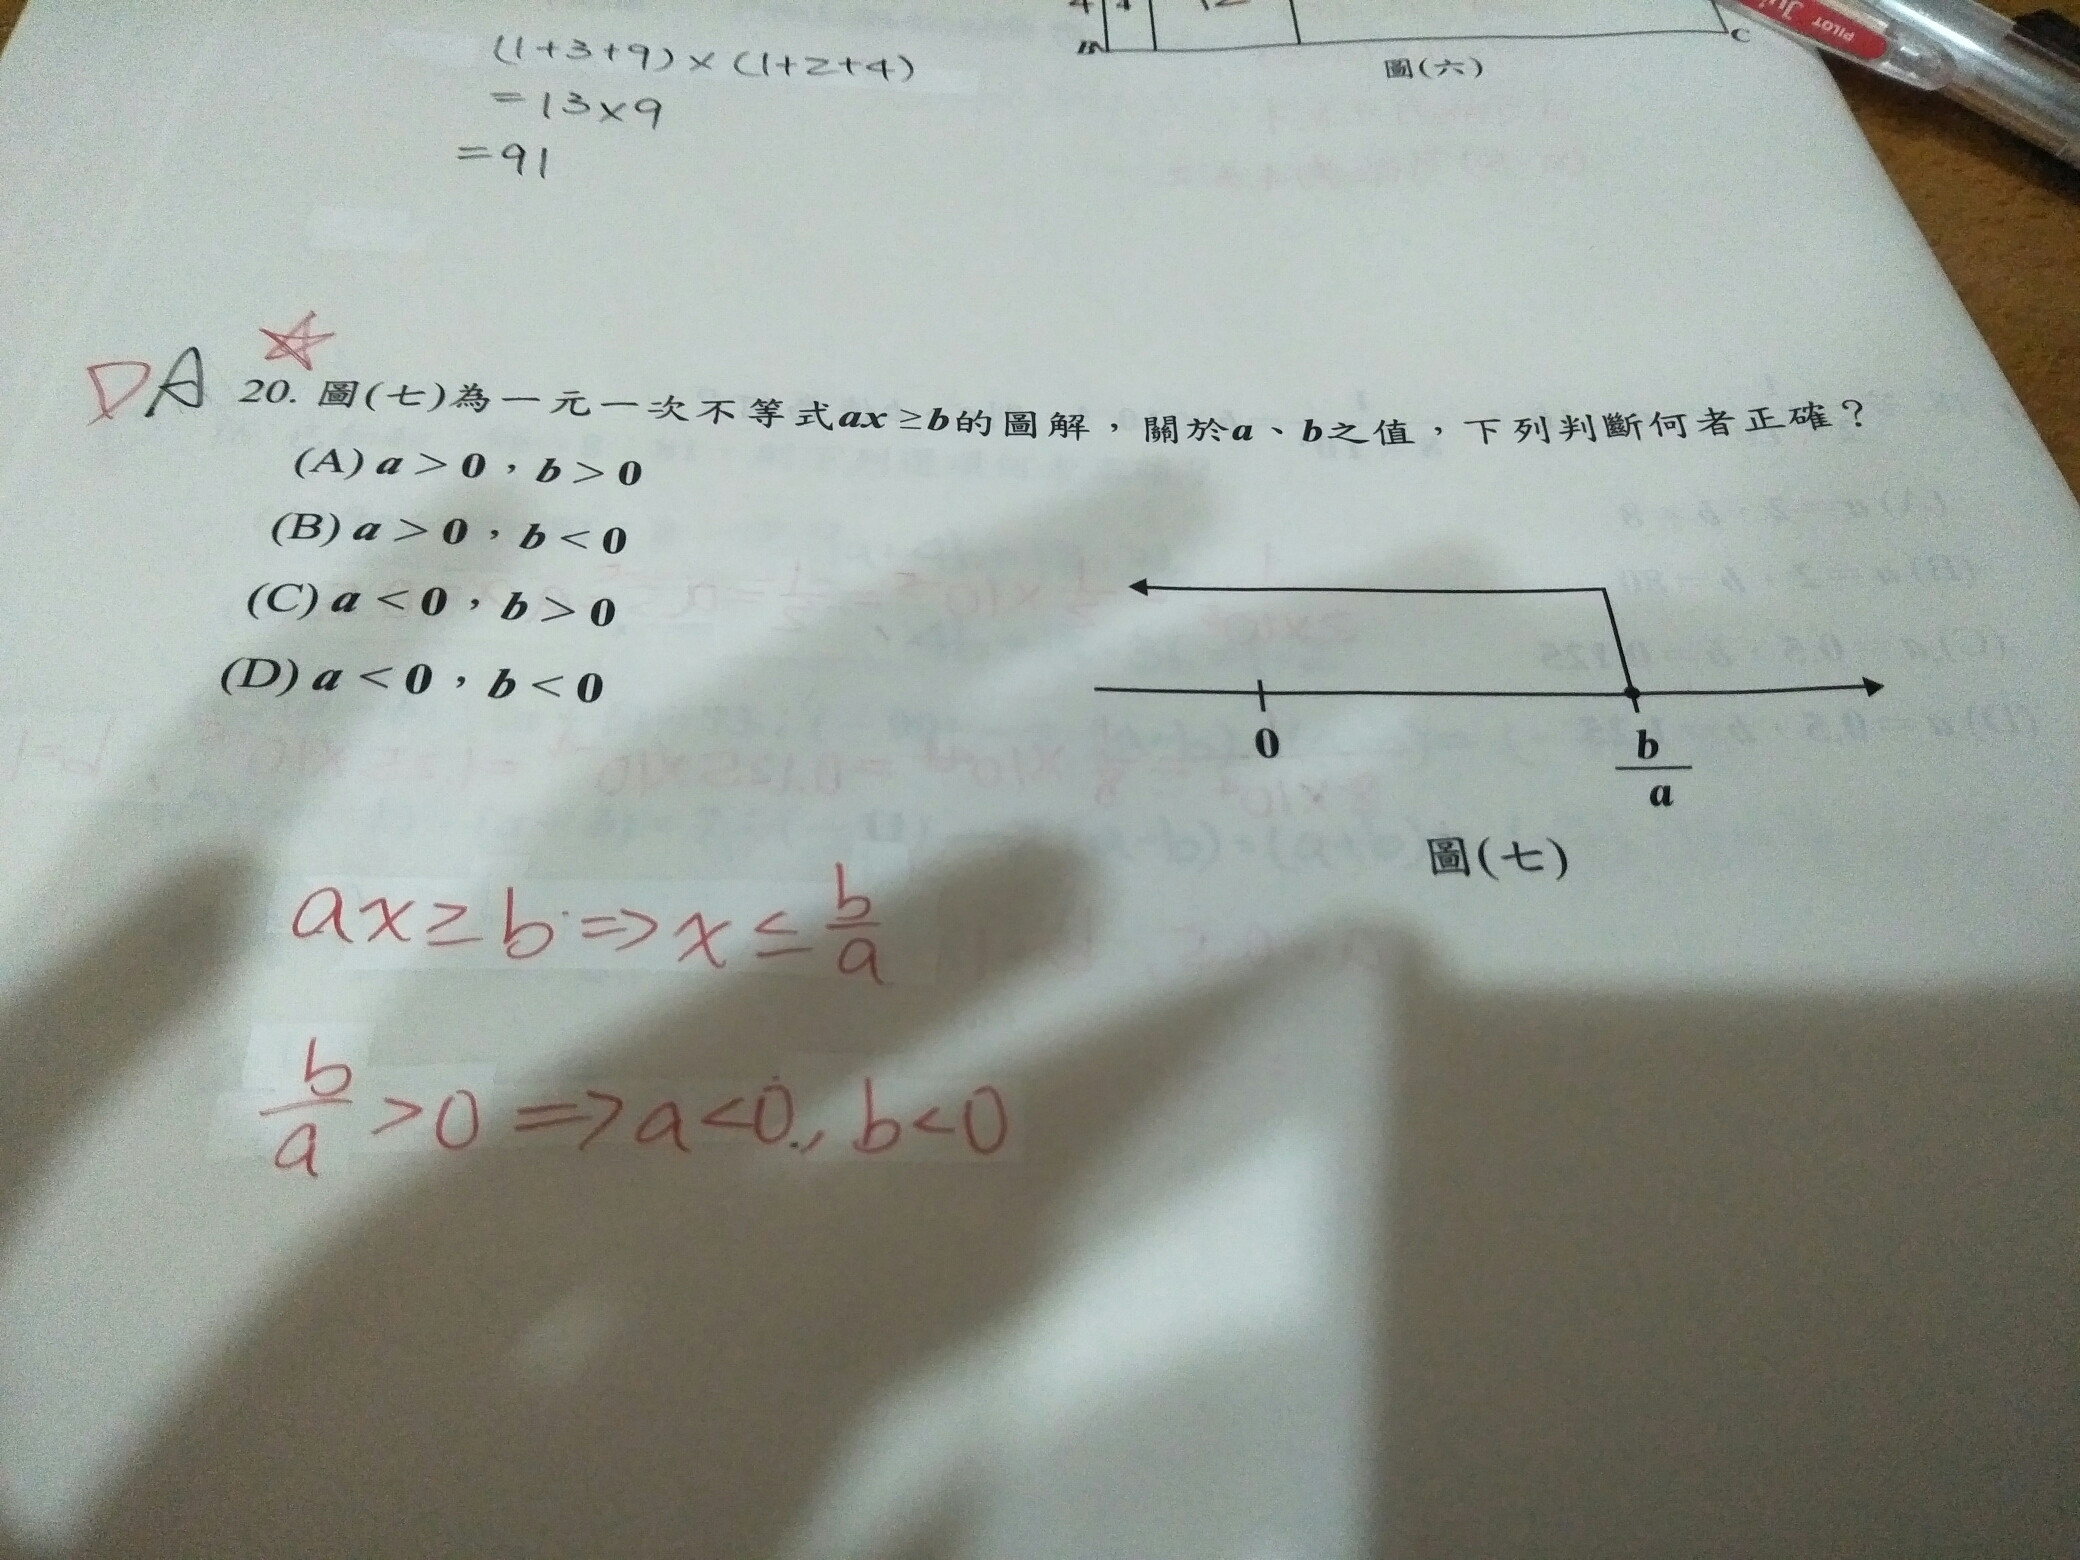 (1+3+9)×(1+2+4)
=13×9
=91
4 4 12
B C
圖(六)
PILOT Jui
DA 20. 圖(七)為一元一次不等式ax ≥b的圖解，關於a、b之值，下列判斷何者正確？
(A) a > 0，b > 0
(B) a > 0，b < 0
(C) a < 0，b > 0
(D) a < 0，b < 0
0 b
a
圖(七)
ax≥b⇒x≤b/a
b/a>0⇒a<0, b<0